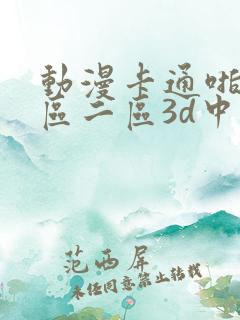 動漫卡通啪
區二區3d中
范西屏
未任同意禁止转载